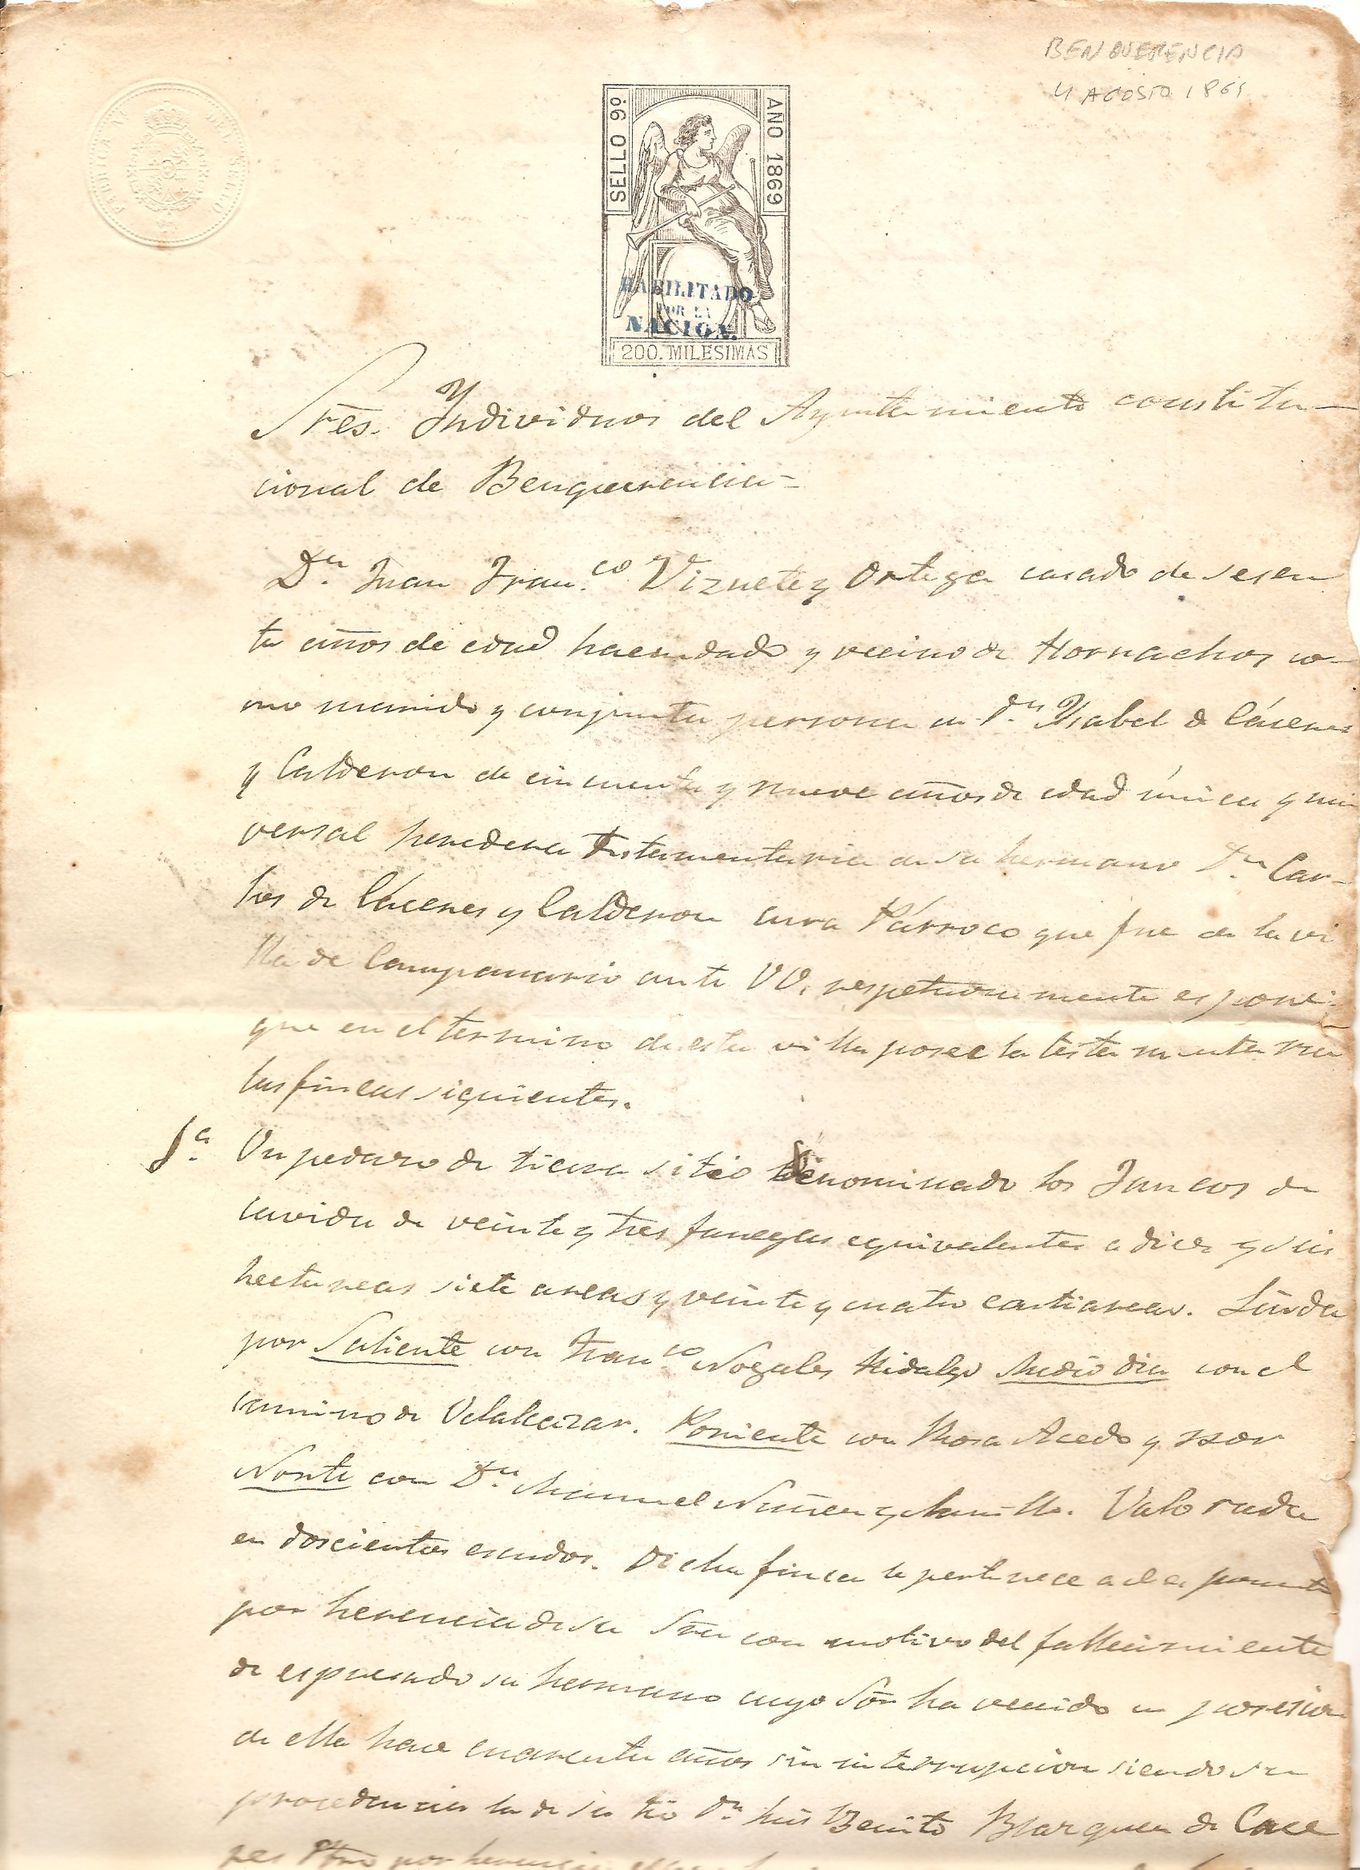 BENQUERENCIA
4 AGOSTO 1869
SELLO 9º
AÑO 1869
HABILITADO
POR LA
NACION.
200. MILESIMAS
Sres. Yndividuos del Ayuntamiento constitu-
cional de Benquerencia=
Dn. Juan Franco. Viznete y Ortega casado de sesen
ta años de edad hacendado y vecino de Hornachos co-
mo marido y conjunta persona de Dª Ysabel de Cáceres
y Calderon de cincuenta y nueve años de edad única y uni
versal heredera testamentaria de su hermano Dn Car-
los de Cáceres y Calderon cura Párroco que fue de la vi
lla de Campanario ante VV. respetuosamente espone:
que en el termino de esta villa posee la testamentaria
las fincas siguientes.
1ª. Un pedazo de tierra sitio denominado los Juncos de
cavida de veinte y tres fanegas equivalentes a diez y seis
hectareas siete areas y veinte y cuatro centiareas. Linda
por Saliente con Franco Nogales Hidalgo Medio dia con el
camino de Velalcazar. Poniente con Rosa Acedo y por
Norte con Dn. Manuel Nuñez y Murillo. Valorada
en doscientos escudos. Dicha finca le pertenece al esponente
por herencia de su Sra con motivo del fallecimiento
de espresado su hermano cuyo Sor ha venido en posesion
de ella hace cuarenta años sin interrupcion siendo su
procedencia la de su tio Dn. Luis Benito Blazquez de Cace
res Pbro por herencia